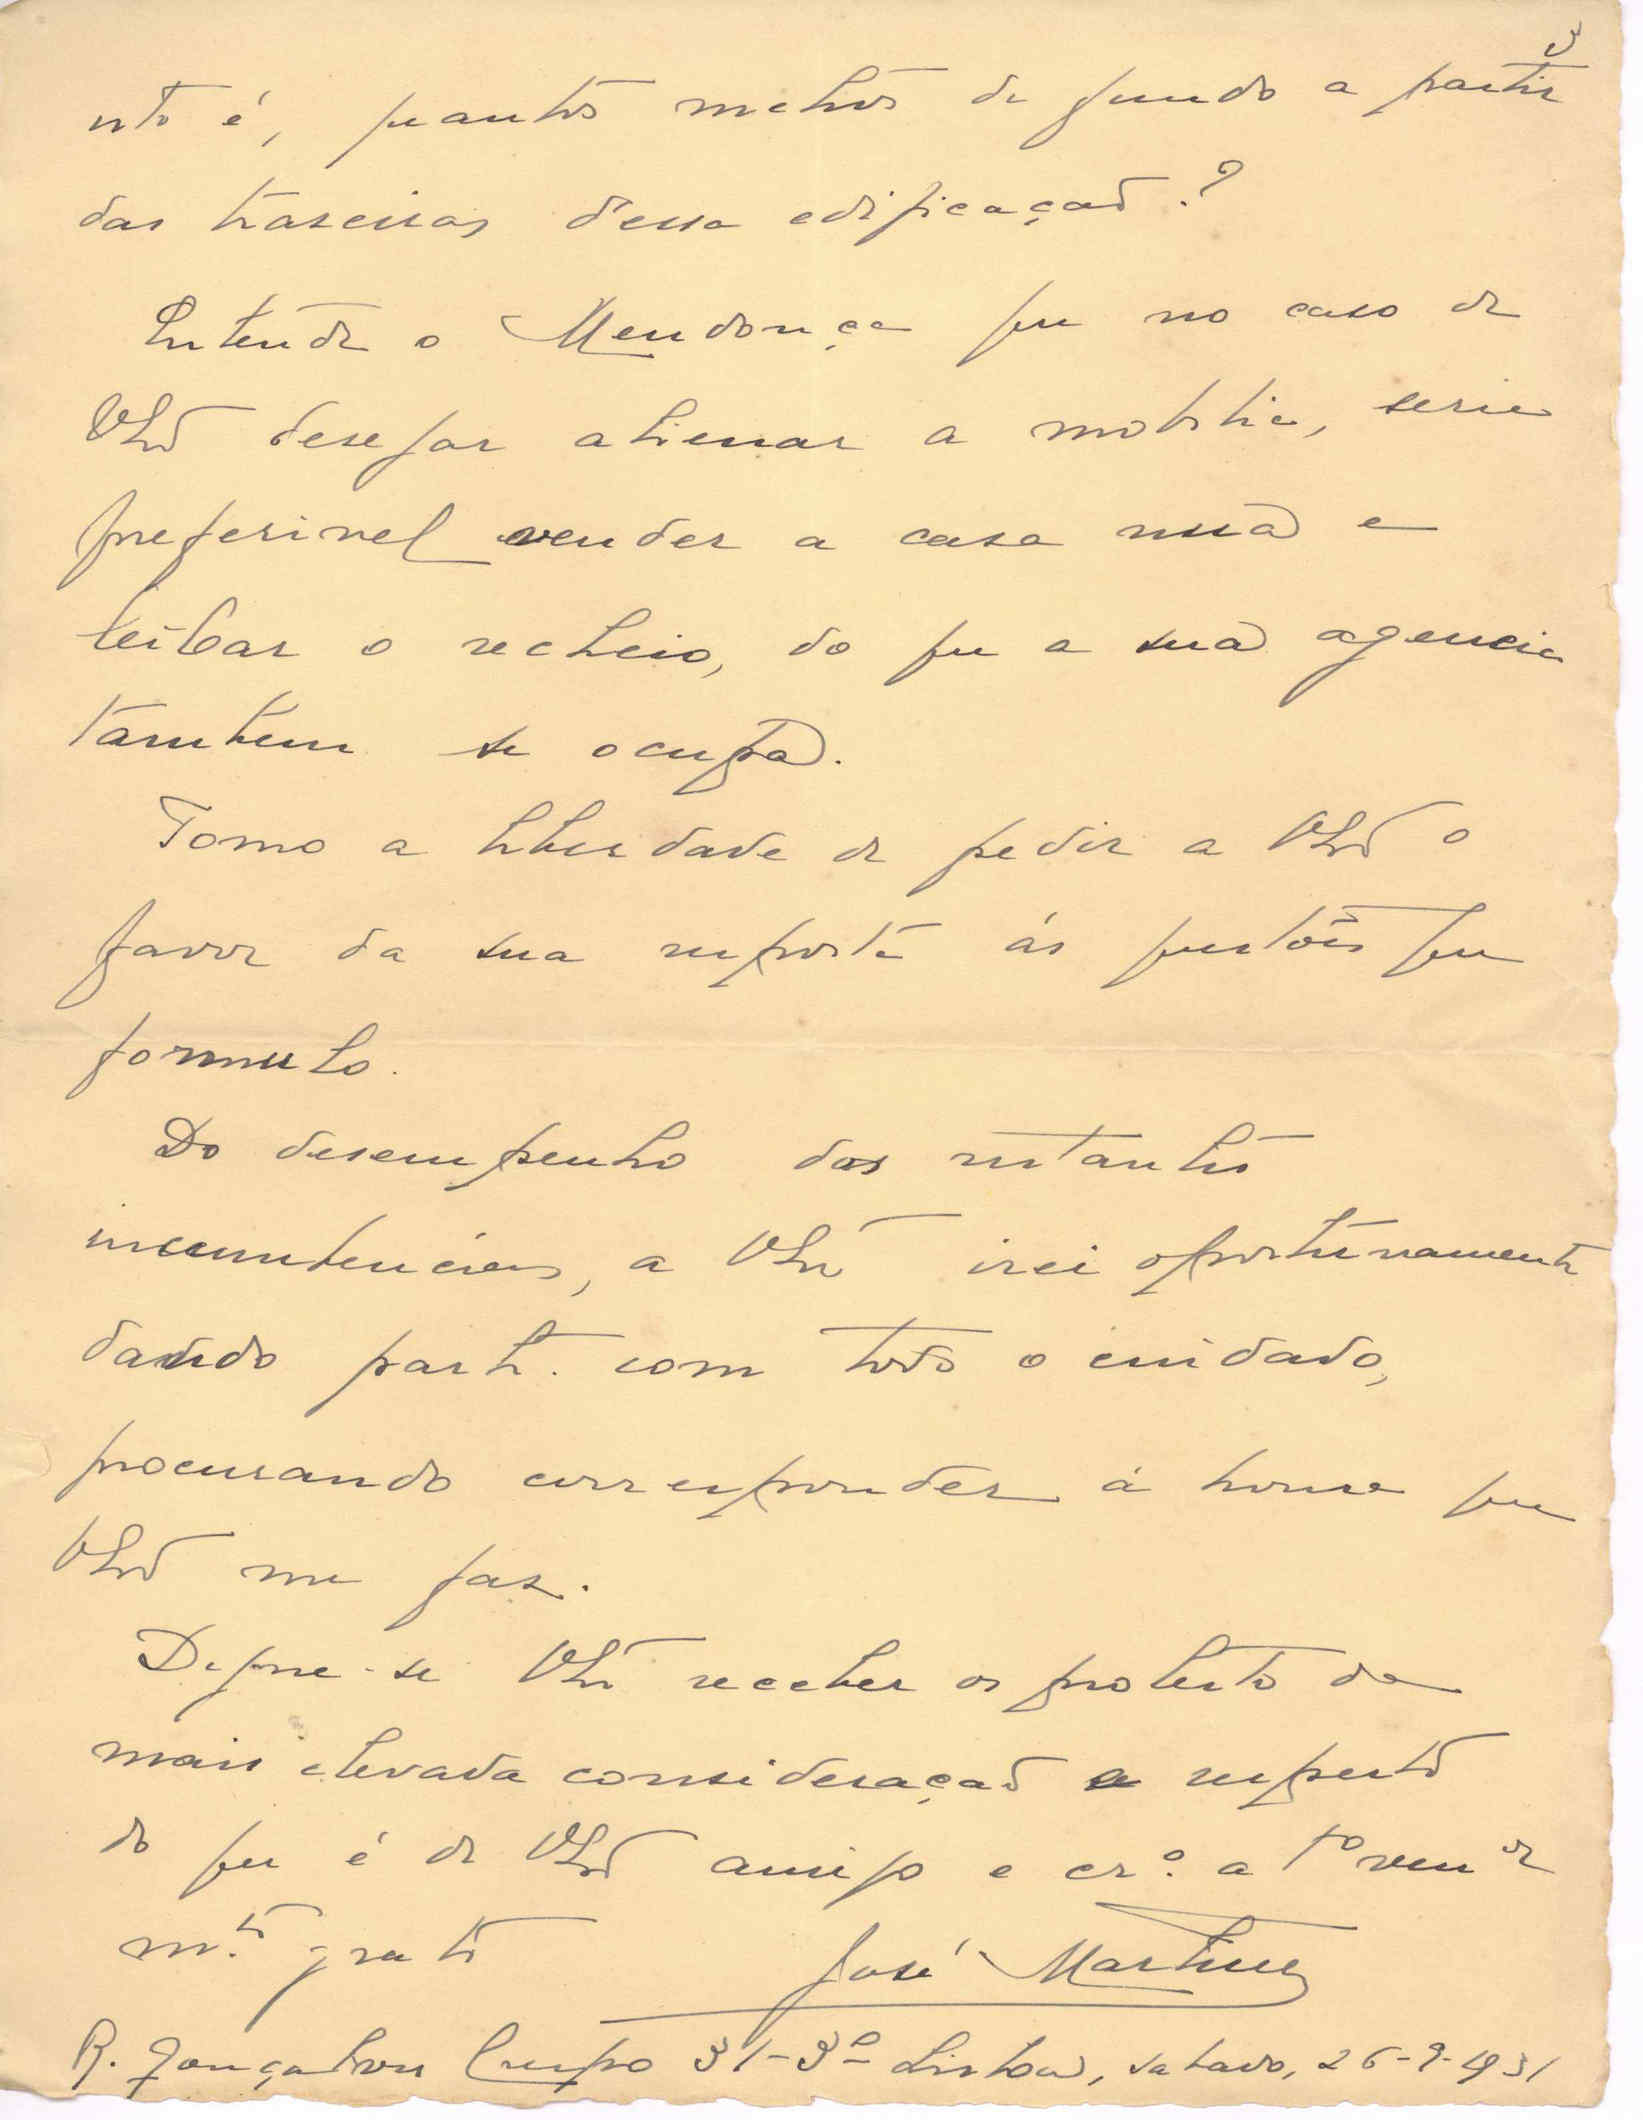 3
isto é, quantos metros de fundo a partir
das traseiras d'essa edificação?
Entende o Mendonça que no caso de
desejar alienar a mobilia, seria
preferivel vender a casa nua e
leiloar o recheio, do que a sua agencia
tambem se ocupa.
Tomo a liberdade de pedir a o
favor da sua resposta ás questões que
formulo.
Do desempenho das restantes
incumbencias, a irei oportunamente
dando parte com todo o cuidado,
procurando corresponder á honra que
me faz.
Digne-se receber os protestos da
mais elevada consideração e respeito
do que é de amigo e cr.º a tº ven.or
m.to grato
José Martins
R. Gonçalves Crespo 31-3º Lisboa, sabado, 26-9-1931